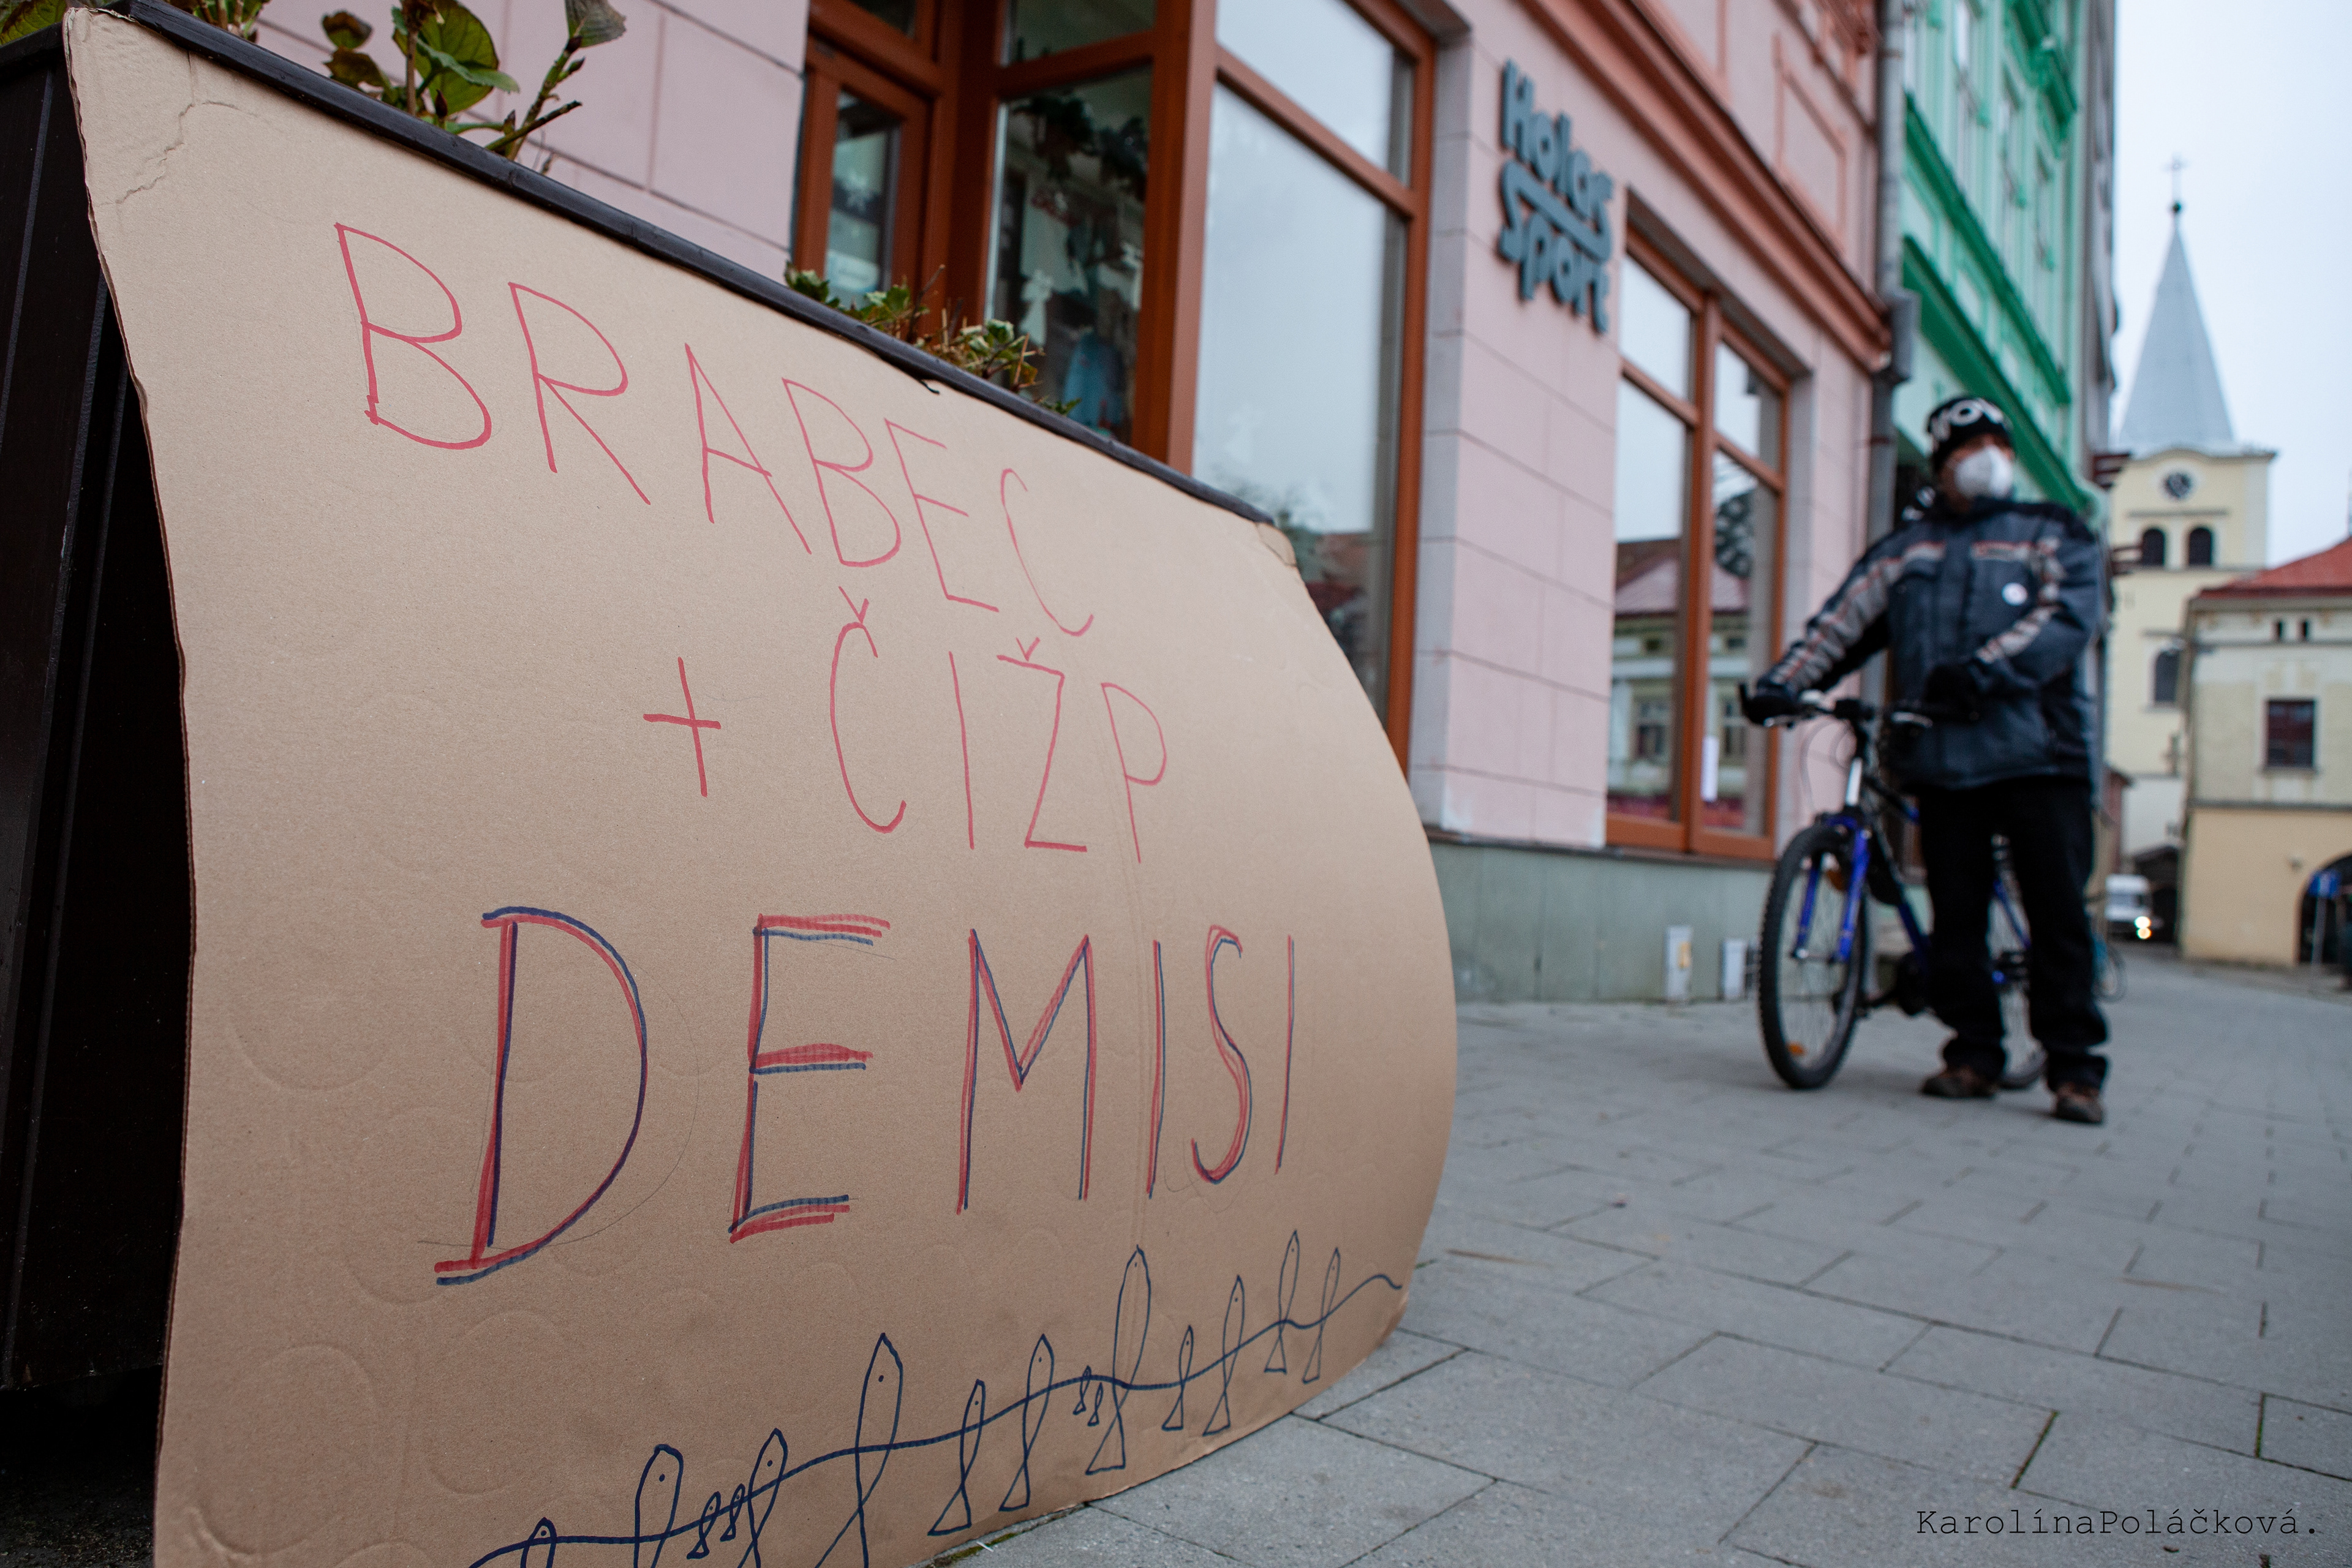 BRABEC
+ ČIŽP
DEMISI
Holas
Sport
KarolínaPoláčková.